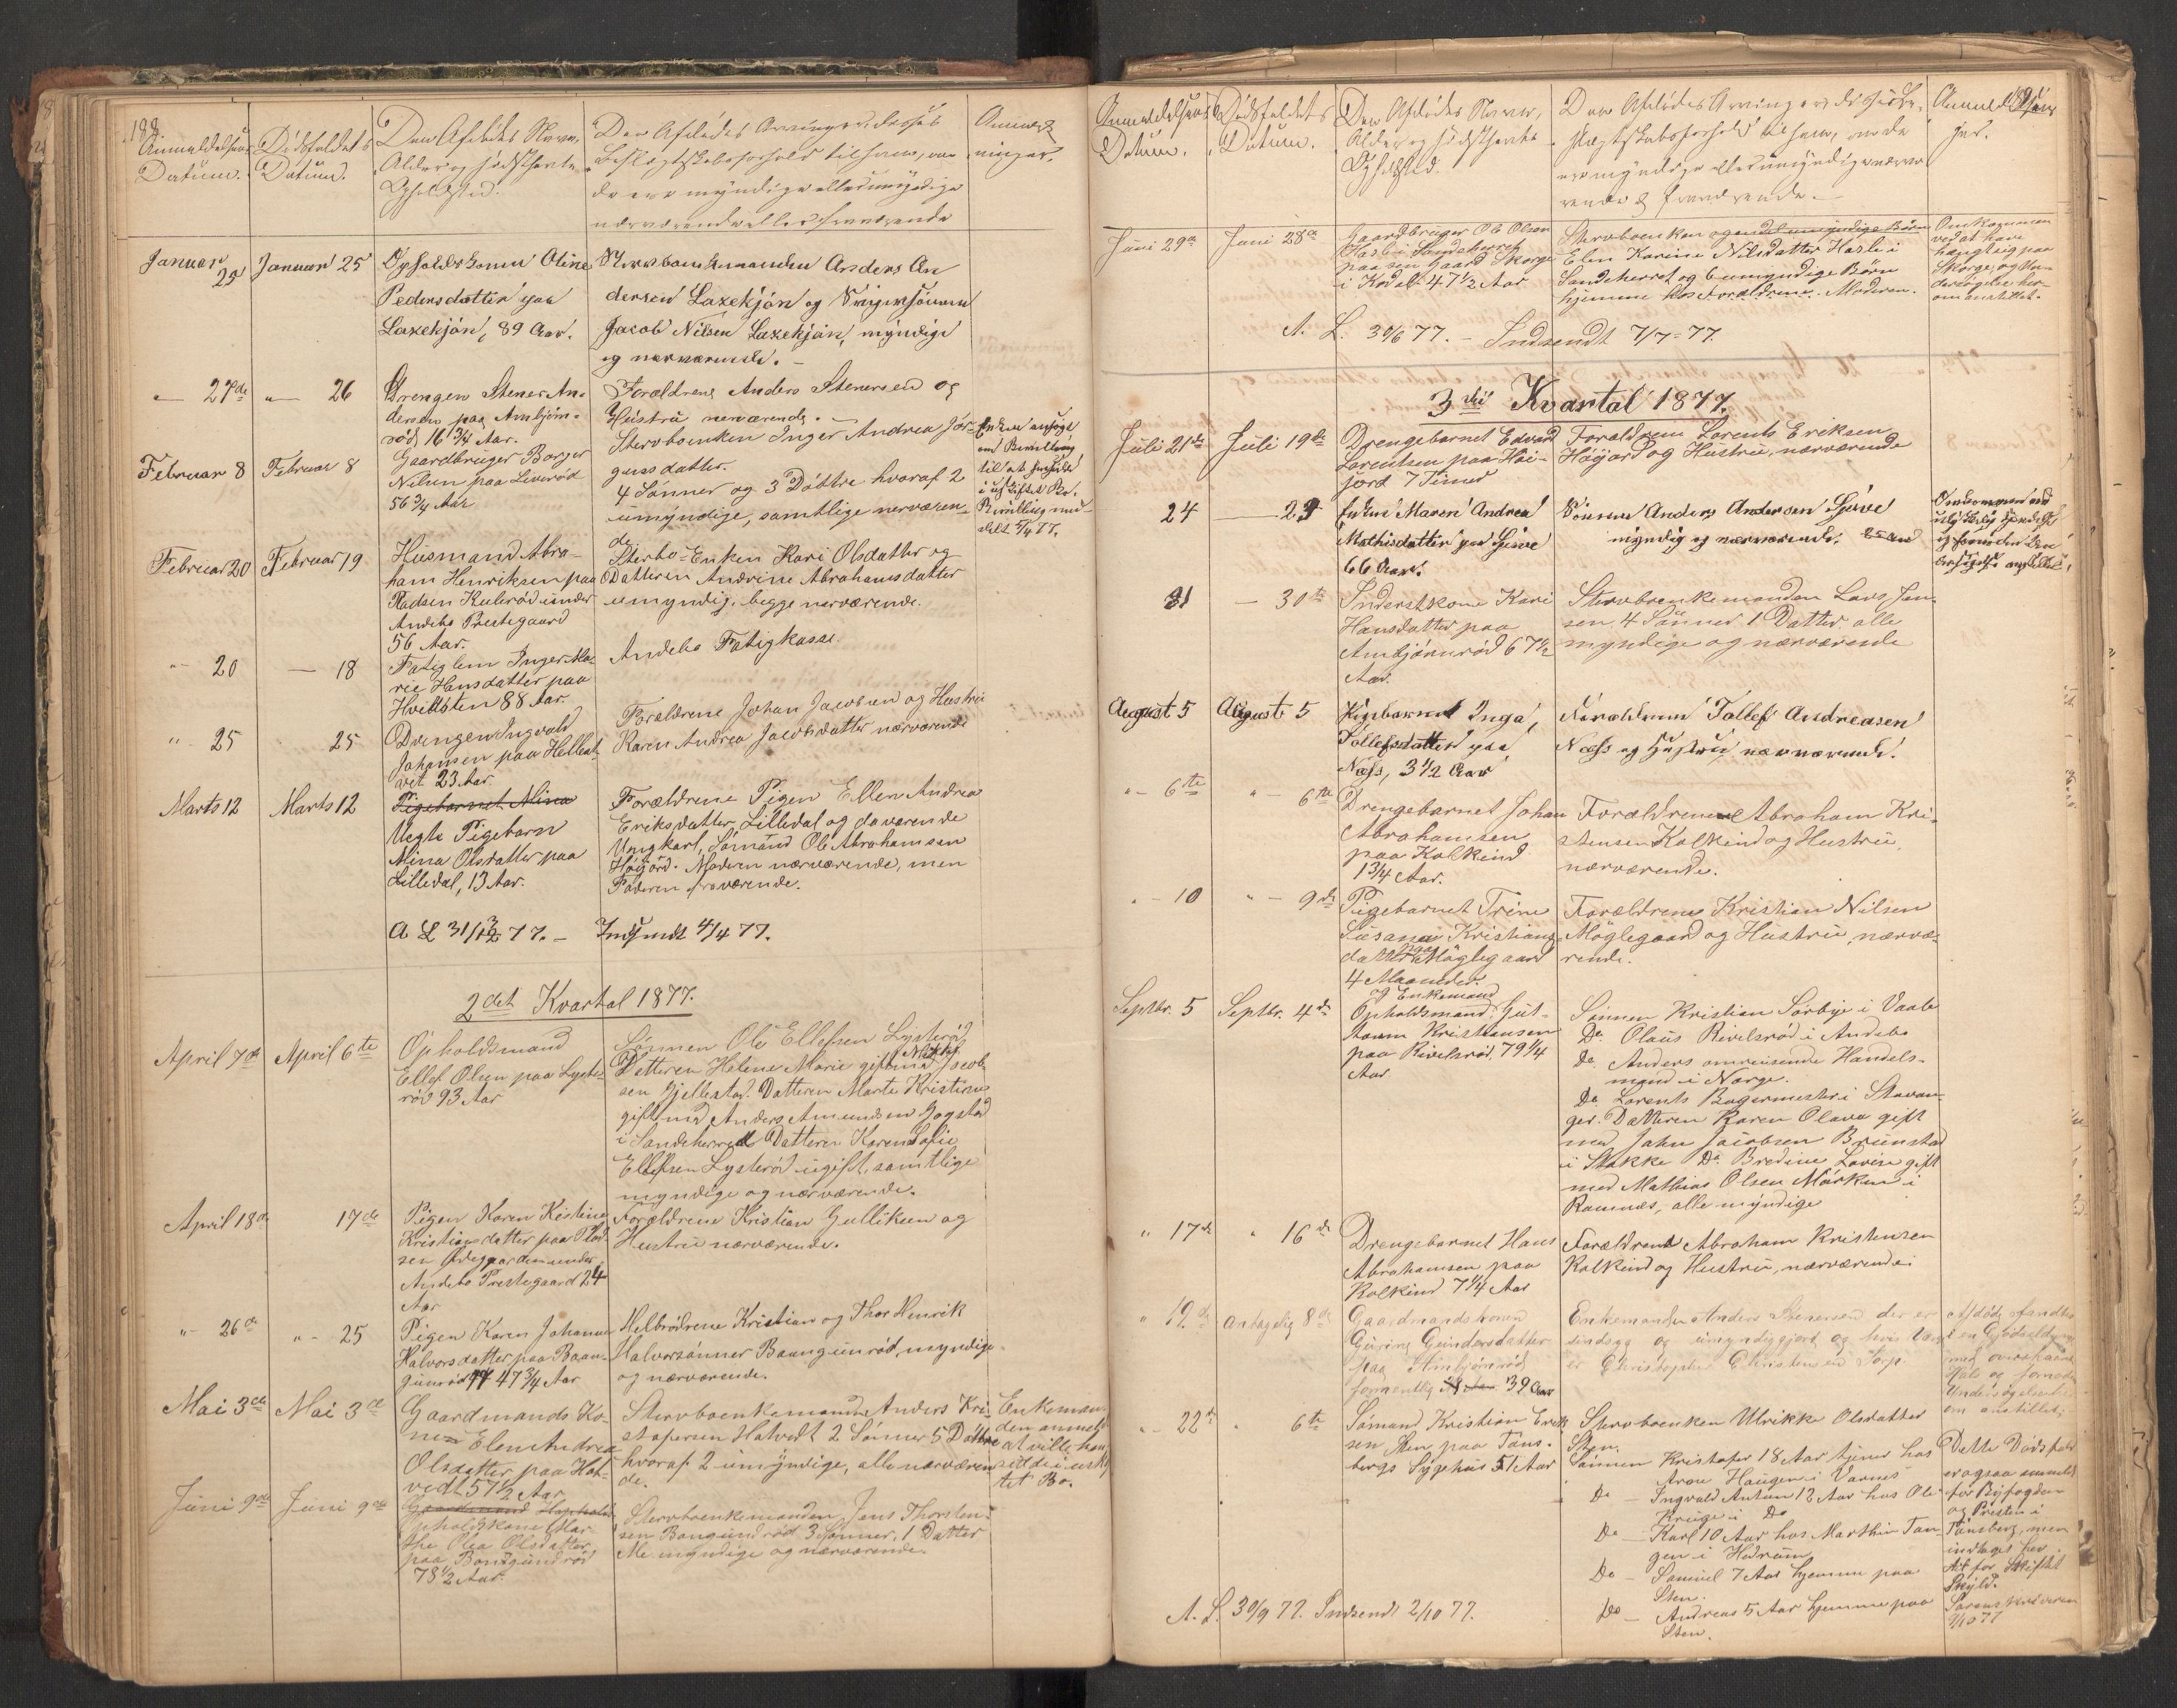 188
Anmeldelsens Datum.
Dødsfaldets Datum.
Den Afdødes Navn, Alder og sidsthavte Opholdssted.
Den Afdødes Arvinger, disses Beslægtskabsforhold til ham, om
de ere myndige eller umyndige
nærværende eller fraværende
Anmærkninger.
Januar 25
Januar 25
Opholdskone Oline
Pedersdatter paa
Laxekjøn, 89 Aar.
Stervboenkemanden Anders An
dersen Laxekjøn og Svigersønnen
Jacob Nilsen Laxekjøn, myndige
og nærværende. –
" 27de
" 26
Drengen Stener An-
dersen paa Ambjørn-
rød 16 3/4 Aar.
Forældrene Anders Stenersen og
Hustru nærværende. –
Februar 8
Februar 8
Gaardbruger Borger
Nilsen paa Liverød
56 3/4 Aar
Stervboenken Inger Andrea Jør-
gensdatter.
4 Sønner og 3 Døttre hvoraf 2
umyndige, samtlige nærværen-
de
Enken ansøge
om Bevilling
til at hensidde
i uskiftet Bo.
Bevilling med-
delt 5/4 77.
Februar 20
Februar 19
Husmand Abra-
ham Henriksen paa
Pladsen Kulerød under
Andebo Prestegaard
56 Aar.
Sterbo-Enken Kari Olsdatter og
Datteren Andrine Abrahamsdatter
umyndig, begge nærværende.
" 20
— 18
Fatiglem Inger Ma-
rie Hansdatter paa
Hvittsten 88 Aar.
Andebo Fatigkasse.
" 25
25
Drengen Ingvald
Johansen paa Hellea-
vet 23 Aar
Forældrene Johan Jacobsen og Hustru
Karen Andrea Jacobsdatter nærværende
Marts 12
Marts 12
Pigebarnet Mina
Uegte Pigebarn
Mina Olsdatter paa
Lilledal, 13 Aar.
Forældrene Pigen Ellen Andrea
Eriksdatter Lilledal og daværende
Ungkarl, Sømand Ole Abrahamsen
Høgjord. Moderen nærværende, men
Faderen fraværende.
A L 31/3 77. – Indsendt 4/4 77.
2det Kvartal 1877.
April 7de
April 6te
Opholdsmand
Ellef Olsen paa Lyste-
rød 93 Aar
Sønnen Ole Ellefsen Lysterød
Datteren Helene Marie gift med Mathis Jacob-
sen Gjellestad. Datteren Marte Kristine
gift med Anders Amundsen Gogstad
i Sandeherred Datteren Karen Sofie
Ellefsen Lysterød ugift, samtlige
myndige og nærværende.
April 18de
17de
Pigen Karen Kristine
Kristiansdatter paa Plad-
sen Ødegaarden under
Andebo Prestegaard 24
Aar
Forældrene Kristian Gulliksen og
Hustru nærværende.
" 26de
" 25
Pigen Karen Johanne
Halvorsdatter paa Baan-
gunrød 47 3/4 Aar
Helbrødrene Kristian og Thor Henrik
Halvorsønner Baangunrød, myndige
og nærværende.
Mai 3de
Mai 3de
Gaardmands Ko-
ne Elen Andrea
Olsdatter paa Hat-
vedt 57 1/2 Aar
Stervboenkemanden Anders Kri-
stofersen Hatvedt 2 Sønner 5 Døttre
hvoraf 2 umyndige, alle nærværen-
de.
Enkeman-
den anmeldt
at ville hen-
sidde i uskif-
tet Bo.
Juni 9de
Juni 9de
Opholdskone Mar-
the Olea Olsdatter
paa Bongundrød
78 1/2 Aar.
Stervboenkemanden Jens Thorsten-
sen Bongundrød 3 Sønner, 1 Datter
Alle myndige og nærværende.
Anmeldelsens Datum.
Dødsfaldets Datum.
Den Afdødes Navn, Alder og sidsthavte Opholdssted.
Den Afdødes Arvinger disses Be-
slægtskabsforhold til ham, om de
ere myndige eller umyndige nærvæ
rende & fraværende. –
Juni 29de
Juni 28de
Gaardbruger Ole Olsen
Hasle i Sandeherred
paa sen Gaard Skorge
i Kodal 47 1/2 Aar
Stervboenken
Elen Karine Nilsdatter Hasle i
Sandeherred og 6 umyndige Børn
hjemme hos Forældrene. Moderen.
Omkommen
ved at have
hængt sig paa
Skorge, og Un-
dersøgelse her-
om anstillet.
A. L. 30/6 77. – Indsendt 7/7 77.
3die Kvartal 1877.
Juli 21de
Juli 19de
Drengebarnet Edvard
Lorentsen paa Høi-
jord 7 Timer
Forældrene Lorents Eriksen
Høijord og Hustru, nærværende
24
— 23
Enken Maren Andrea
Mathisdatter paa Gjøve
66 Aar.
Sønnen Anders Andersen Gjøve
myndig og nærværende.
31
— 30te
Inderstkone Kari
Hansdatter paa
Ambjørnrød 67 1/2
Aar.
Stervboenkemanden Lars Jan-
sen 4 Sønner 1 Datter alle
myndige og nærværende
August 5
August 5
Pigebarnet Inga
Tollefsdatter paa
Næss, 3 1/2 Aar
Forældrene Tollef Andreasen
Næss og Hustru, nærværende.
" 6te
" 6te
Drengebarnet Johan
Abrahamsen
paa Kolkind
1 3/4 Aar.
Forældrene Abraham Kri-
stensen Kolkind og Hustru,
nærværende.
" – 10
" – 9de
Pigebarnet Trine
Susana Kristians-
datter paa Møglegaard
4 Maaneder.
Forældrene Kristian Nilsen
Møglegaard og Hustru, nærvæ-
rende.
Septbr. 5
Septbr. 4de
og Enkemand
Opholdsmand Gut-
torm Kristensen
paa Rivelsrød 79 1/4
Aar
Sønnen Kristian Sørbye i Vaale
Do Olaus Rivelsrød i Andebo
Do Anders omreisende Handels-
mand i Norge.
Do Lorents Bagermester i Stavan-
ger. Datteren Karen Olava gift
med John Jacobsen Brunstad
i Stokke Do Bredine Lovise gift
med Mathias Olsen Mørken i
Ramnæs, alle myndige
" 17de
" 16de
Drengebarnet Hans
Abrahamsen paa
Kolkind 7 1/4 Aar
Forældrene Abraham Kristensen
Kolkind og Hustru, nærværende.
" 19de
Antagelig 8de
Gaardmandskonen
Gurine Gundersdatter
paa Ambjørnrød
formentlig 39 Aar
Enkemanden Anders Stenersen der er
sindssyg og umyndiggjort og hvis Værge
er Christopher Christensen Torp.
" 22de
" 6te
Sømand Kristian Erik-
sen Sten paa Tøns-
bergs Sygehus 51 Aar
Stervboenken Ulrikke Olsdatter
Sten.
Sønnen Kristofer 18 Aar tjener hos
Aron Haugen i Varnes
Do – Ingvald Anton 12 Aar hos Ole
Kruge i Do
Do – Karl 10 Aar hos Marthin Tan-
gen i Hedrum
Do – Samuel 7 Aar hjemme paa
Sten.
Do – Andreas 5 Aar hjemme paa
Sten.
Dette Dødsfald
er ogsaa anmeldt
for Byfogden
og Presten i
Tønsberg, men
indtaget her
for Skiftet
Skyld.
Sorenskriveren
2/10 77
A. L. 30/9 77. Indsendt 2/10 77.